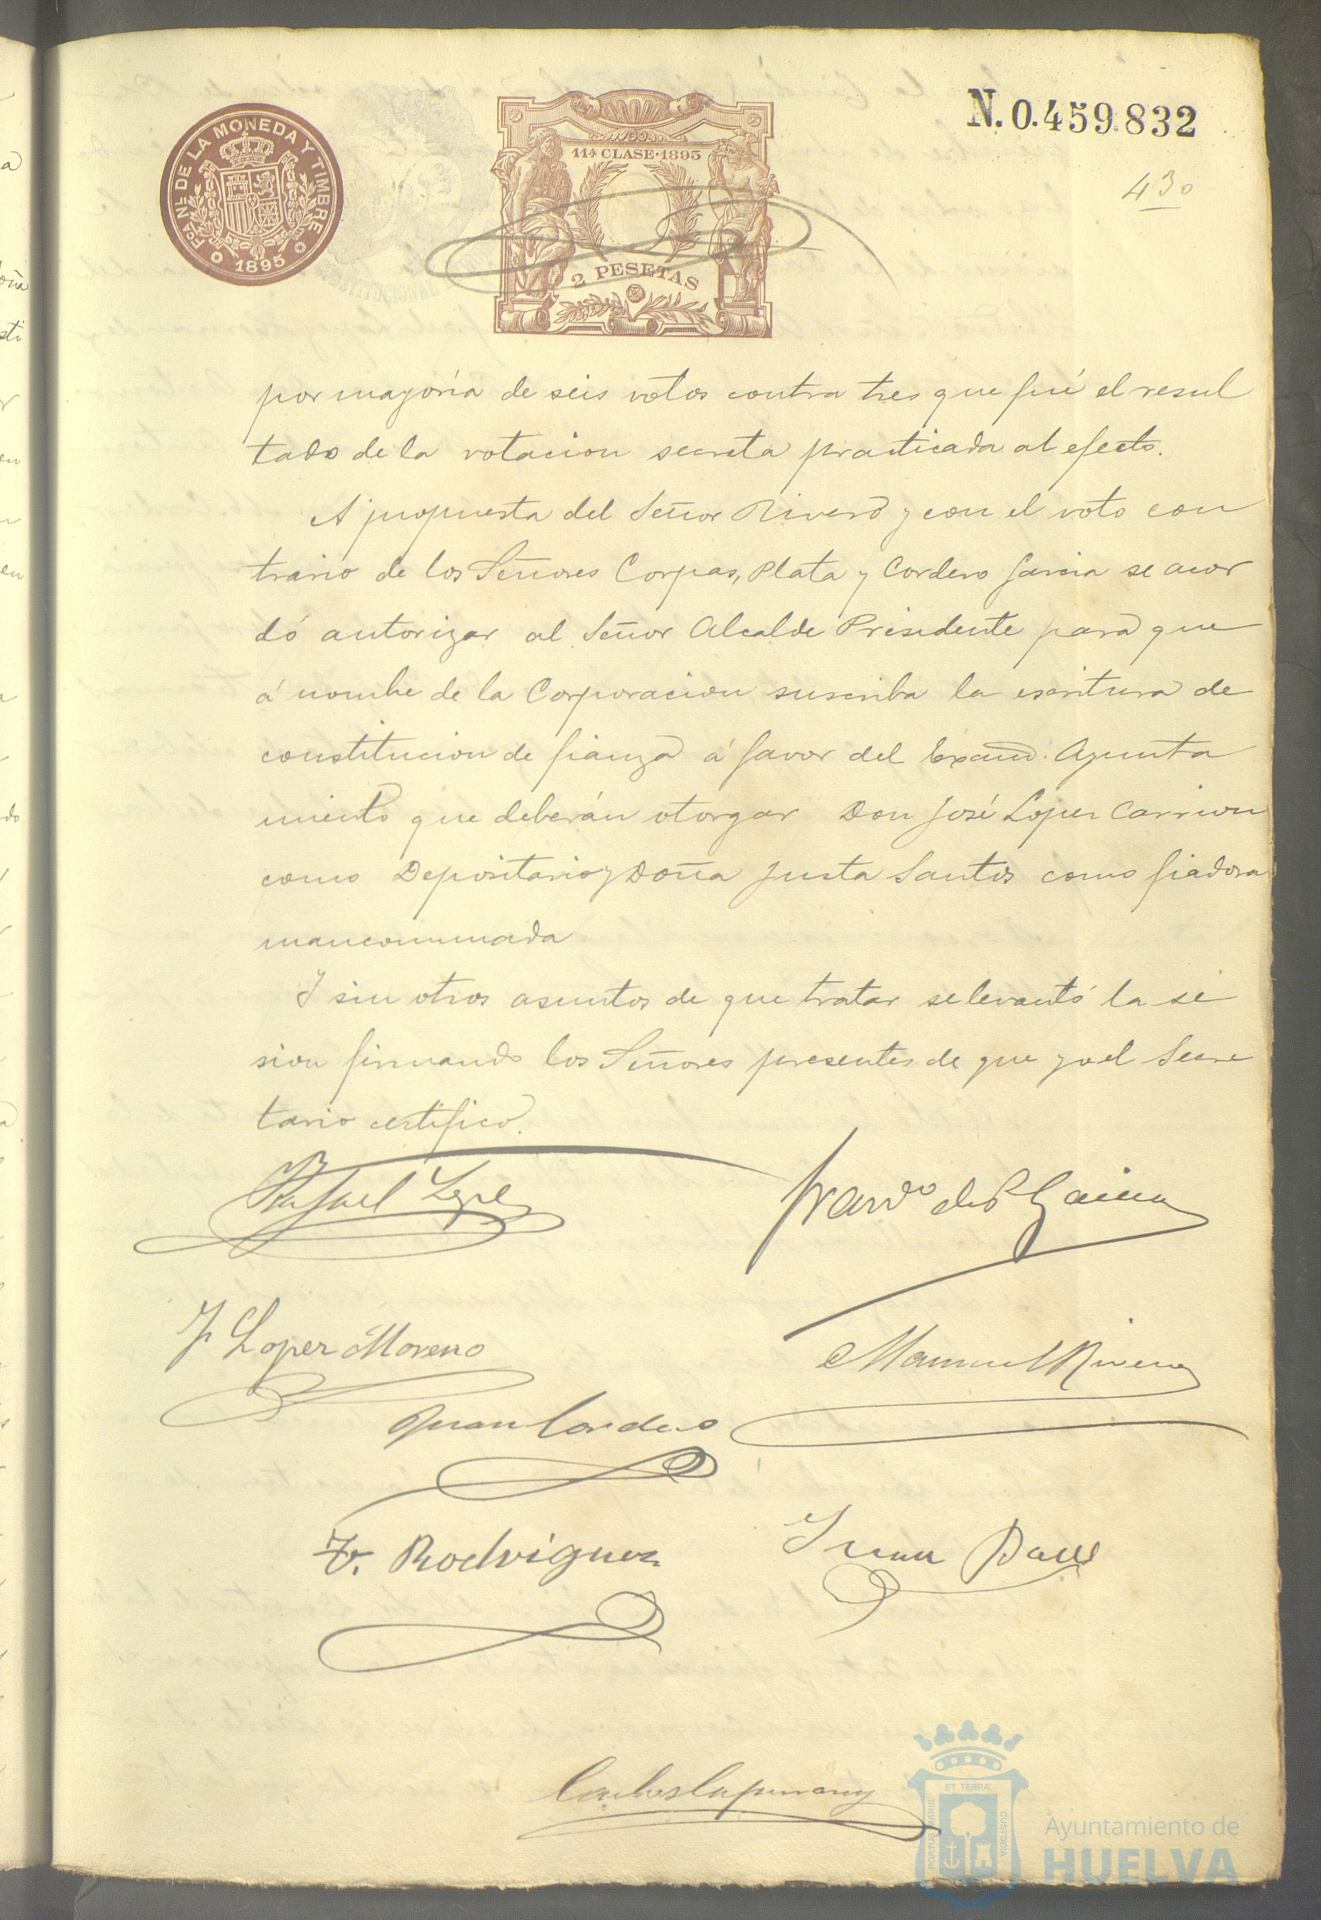 N. 0.459.832
430
Fca. Nl. DE LA MONEDA Y TIMBRE
1895
11ª CLASE·1895
2 PESETAS
por mayoría de seis votos contra tres que fué el resul
tado de la votacion secreta practicada al efecto.
A propuesta del Señor Rivero y con el voto con
trario de los Señores Corpas, Plata y Cordero Garcia se acor
dó autorizar al Señor Alcalde Presidente para que
á nombre de la Corporacion suscriba la escritura de
constitucion de fianza á favor del Excmo. Ayunta
miento que deberán otorgar Don José Lopez Carrion
como Depositario y Doña Justa Santos como fiadora
mancomunada
Y sin otros asuntos de que tratar se levantó la se
sion firmando los Señores presentes de que yo el Secre
tario certifico.
Rafael Lopez
Garcia
J Lopez Moreno
Manuel Rivero
Juan Cordero
F. Rodriguez
Juan
Carlos
PORTUS MARIS ET TERRÆ CUSTODIA
Ayuntamiento de
HUELVA